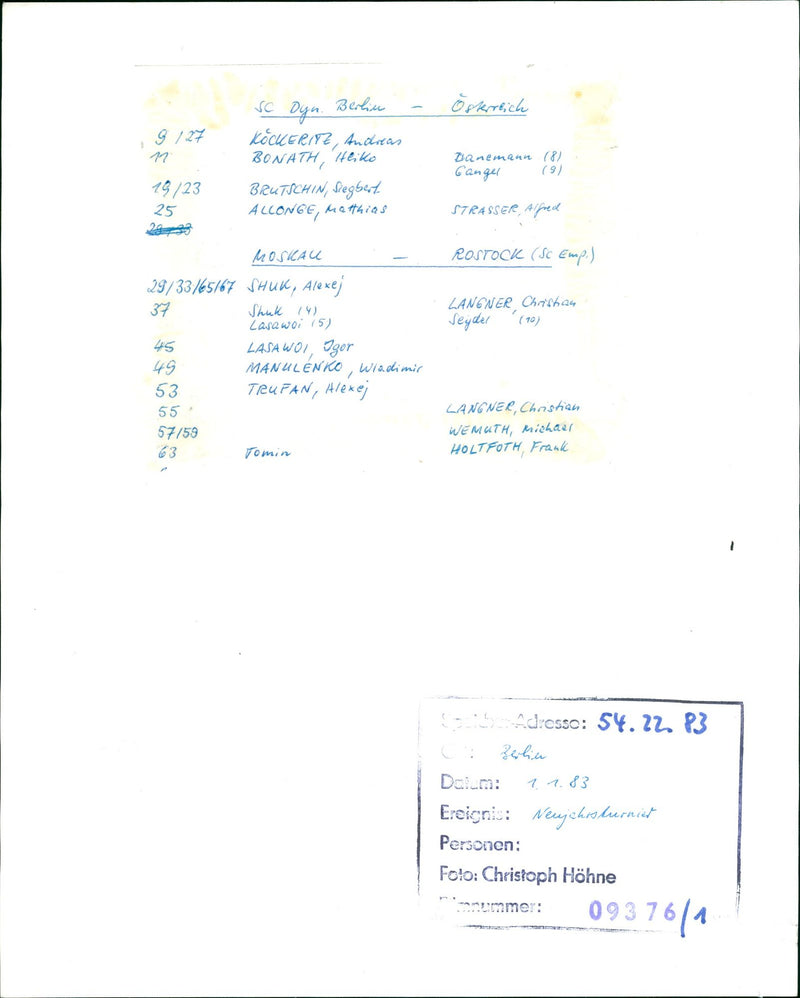 SC Dyn. Berlin — Österreich
9/27 KÖCKERITZ, Andreas
11 BONATH, Heiko Danemann (8)
Ganger (9)
19/23 BRUTSCHIN, Siegbert
25 ALLONGE, Matthias STRASSER, Alfred
MOSKAU — ROSTOCK (SC Emp.)
29/33/65/67 SHUK, Alexej
37 Shuk (4) LANGNER, Christian
Lasawoi (5) Seyder (10)
45 LASAWOI, Igor
49 MANULENKO, Wladimir
53 TRUFAN, Alexej
55 LANGNER, Christian
57/59 WEMUTH, Michael
63 Tomin HOLTFOTH, Frank
Speicher-Adresse: 54.22.83
Ort: Berlin
Datum: 1.1.83
Ereignis: Neujahrsturnier
Personen:
Foto: Christoph Höhne
Filmnummer: 09376/1